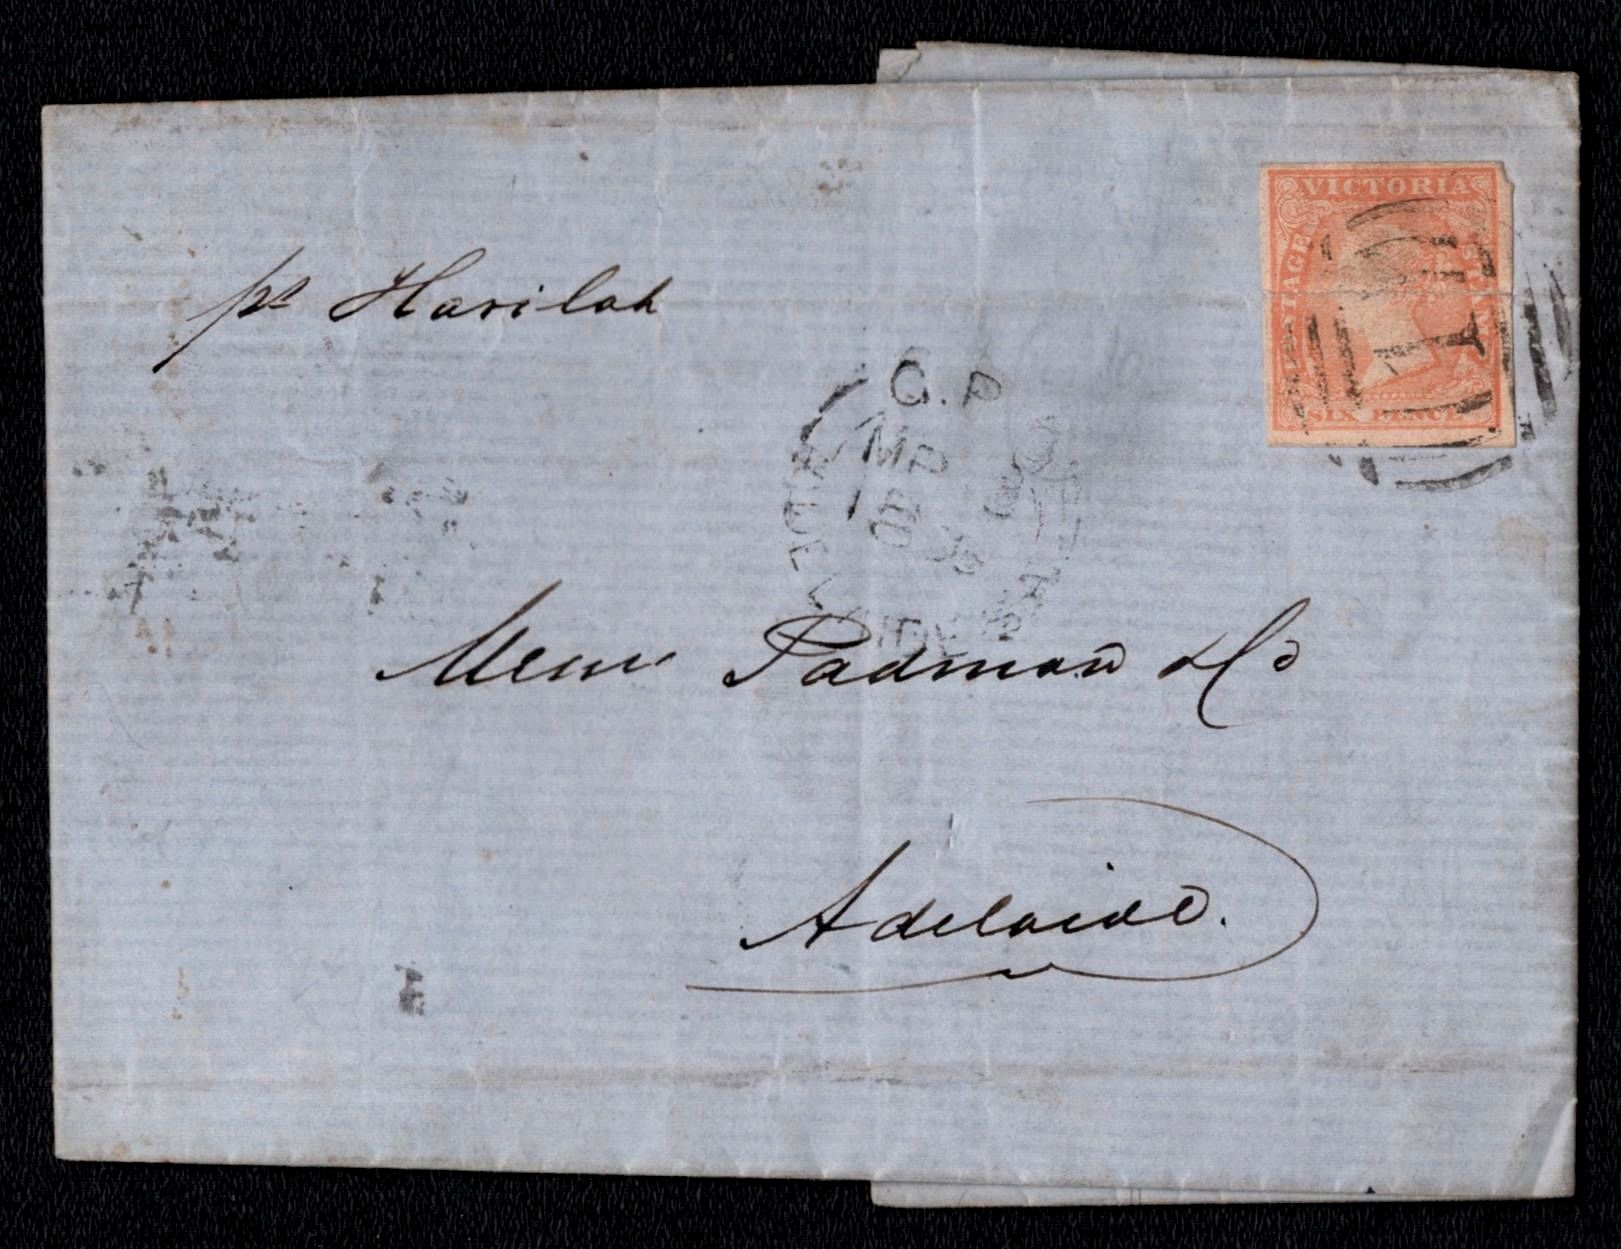 VICTORIA
POSTAGE
SIX PENCE
1
pr Havilah
G.P.O
MR
ADELAIDE
Messrs Padman & Co
Adelaide.